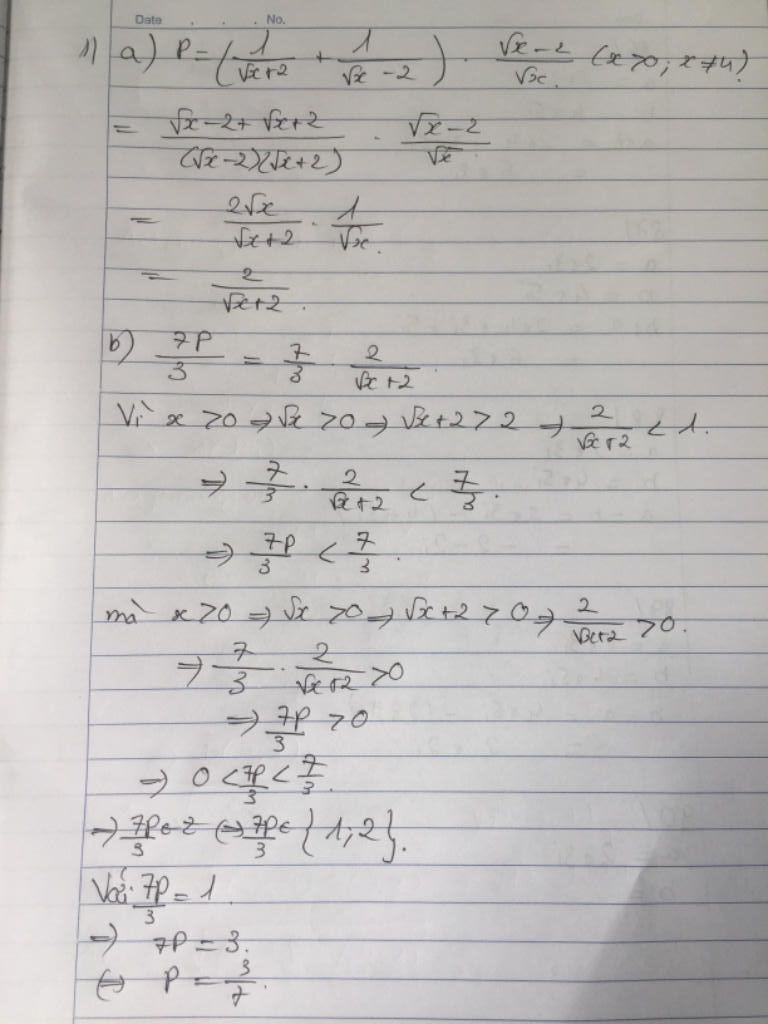 Date . . . No.
1) a) P = (1/(√x+2) + 1/(√x-2)) . (√x-2)/√x. (x>0; x≠4)
= (√x-2+√x+2)/((√x-2)(√x+2)) . (√x-2)/√x.
= 2√x/(√x+2) . 1/√x.
= 2/(√x+2).
b) 7P/3 = 7/3 . 2/(√x+2).
Vì x>0 ⇒ √x>0 ⇒ √x+2>2 ⇒ 2/(√x+2) < 1.
⇒ 7/3 . 2/(√x+2) < 7/3.
⇒ 7P/3 < 7/3.
mà x>0 ⇒ √x>0 ⇒ √x+2>0 ⇒ 2/(√x+2) >0.
⇒ 7/3 . 2/(√x+2) >0
⇒ 7P/3 >0
⇒ 0 < 7P/3 < 7/3.
⇒ 7P/3 ∈ Z ⇔ 7P/3 ∈ {1; 2}.
Với 7P/3 = 1.
⇒ 7P = 3.
⇔ P = 3/7.